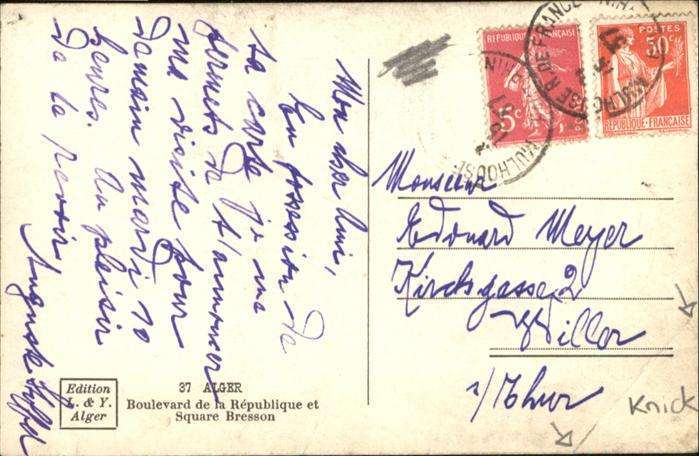 Mon cher Ami,
En possession de
ta carte je me
permets de t'annoncer
ma visite pour
Demain mardi 10
heures. Au plaisir
de te revoir
August
Monsieur
Edouard Meyer
Kirchgasse 2
Willer
s/Thur
Knick
RÉPUBLIQUE FRANÇAISE
5c
POSTES
50c
RÉPUBLIQUE FRANÇAISE
MULHOUSE
Edition
L. & Y.
Alger
37 ALGER
Boulevard de la République et
Square Bresson